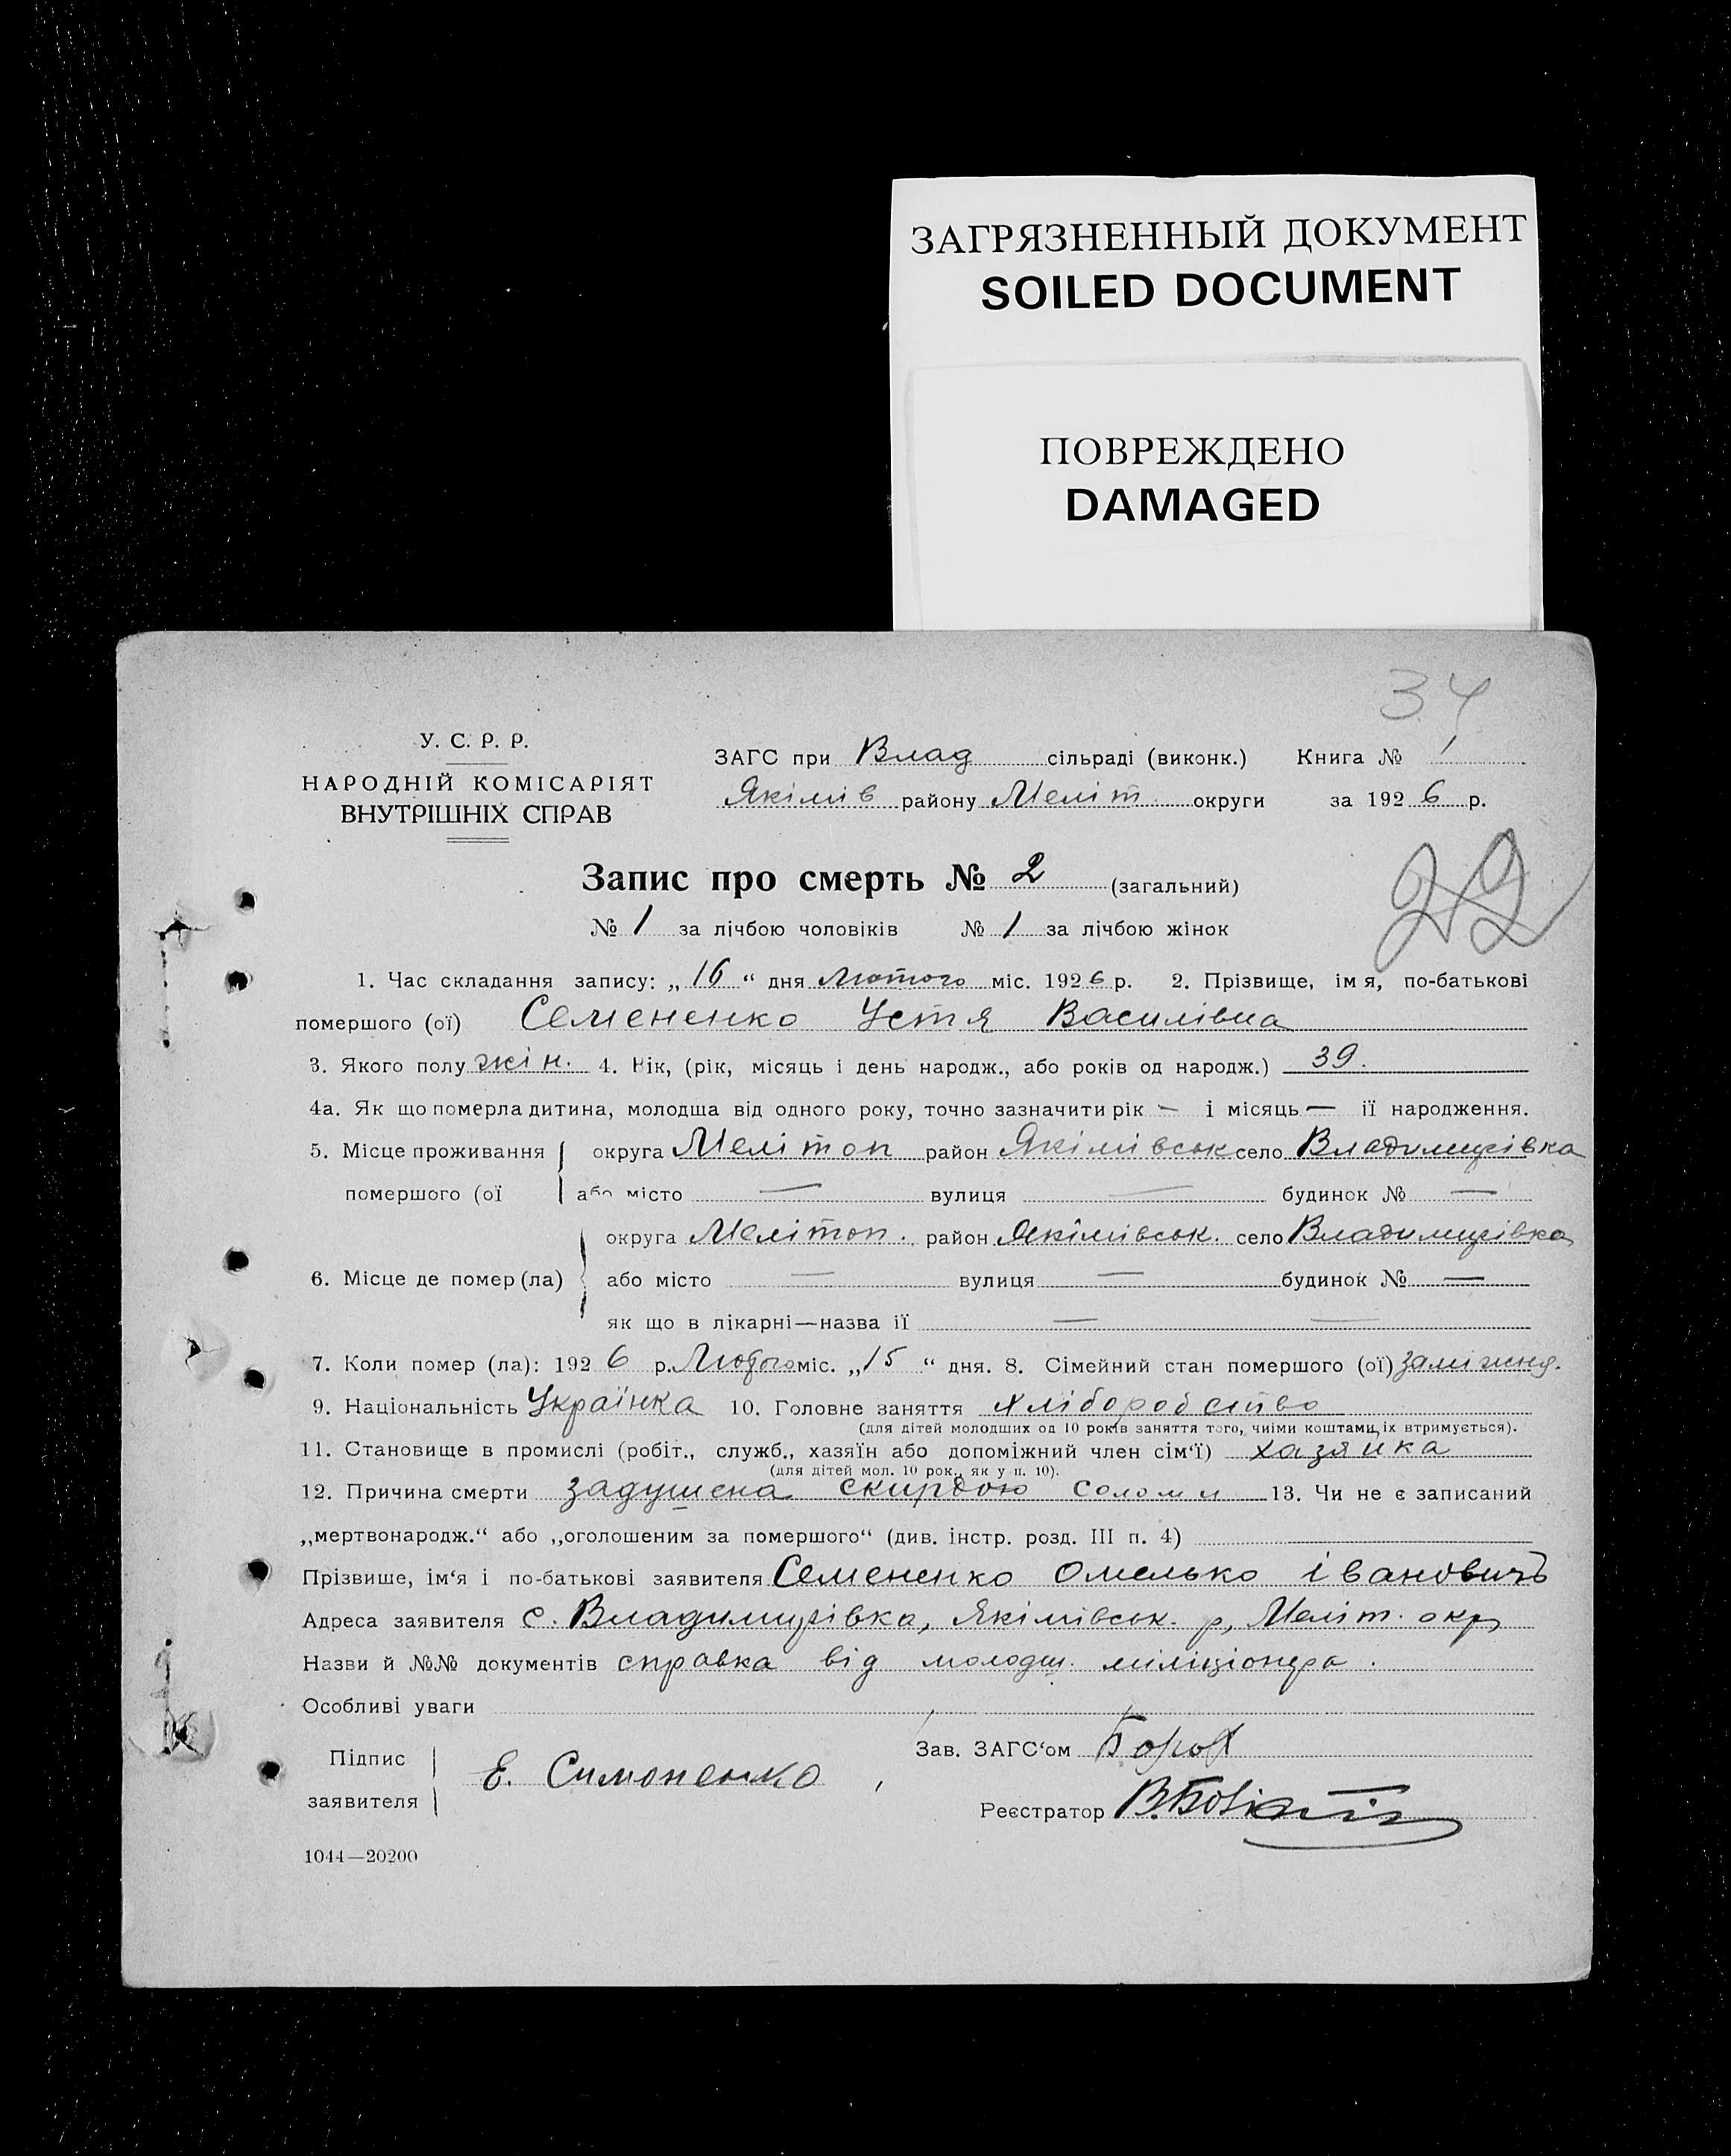 ЗАГРЯЗНЕННЫЙ ДОКУМЕНТ
SOILED DOCUMENT
ПОВРЕЖДЕНО
DAMAGED
34
У. С. Р. Р.
НАРОДНІЙ КОМІСАРІЯТ
ВНУТРІШНІХ СПРАВ
ЗАГС при Влад сільраді (виконк.) Книга № 1
Якімів району Меліт округи за 1926 р.
Запис про смерть № 2 (загальний)
22
№ 1 за лічбою чоловіків № 1 за лічбою жінок
1. Час складання запису: „16“ дня Лютого міс. 1926 р. 2. Прізвище, імя, по-батькові
помершого (ої) Семененко Устя Василівна
3. Якого полу жін. 4. Вік, (рік, місяць і день народж., або років од народж.) 39.
4а. Як що померла дитина, молодша від одного року, точно зазначити рік — і місяць — її народження.
5. Місце проживання округа Мелітоп район Якімівськ село Владимирівка
помершого (ої або місто — вулиця — будинок № —
округа Мелітоп. район Якімівськ. село Владимирівка
6. Місце де помер (ла) або місто — вулиця — будинок № —
як що в лікарні—назва її — —
7. Коли помер (ла): 1926 р. Лютого міс. „15“ дня. 8. Сімейний стан помершого (ої) заміжня.
9. Національність Українка 10. Головне заняття хліборобство
(для дітей молодших од 10 років заняття того, чиїми коштами їх втримується).
11. Становище в промислі (робіт., служб., хазяїн або допоміжний член сім'ї) хазяйка
(для дітей мол. 10 рок., як у п. 10).
12. Причина смерти задушена скирдою соломи 13. Чи не є записаний
„мертвонародж.“ або „оголошеним за помершого“ (див. інстр. розд. III п. 4)
Прізвише, ім'я і по-батькові заявителя Семененко Омелько івановичъ
Адреса заявителя с. Владимирівка, Якімівськ. р, Меліт. окр
Назви й №№ документів справка від молодш. міліціонера.
Особливі уваги
Зав. ЗАГС'ом
Підпис
заявителя Е. Симоненко
Реєстратор
1044—20200